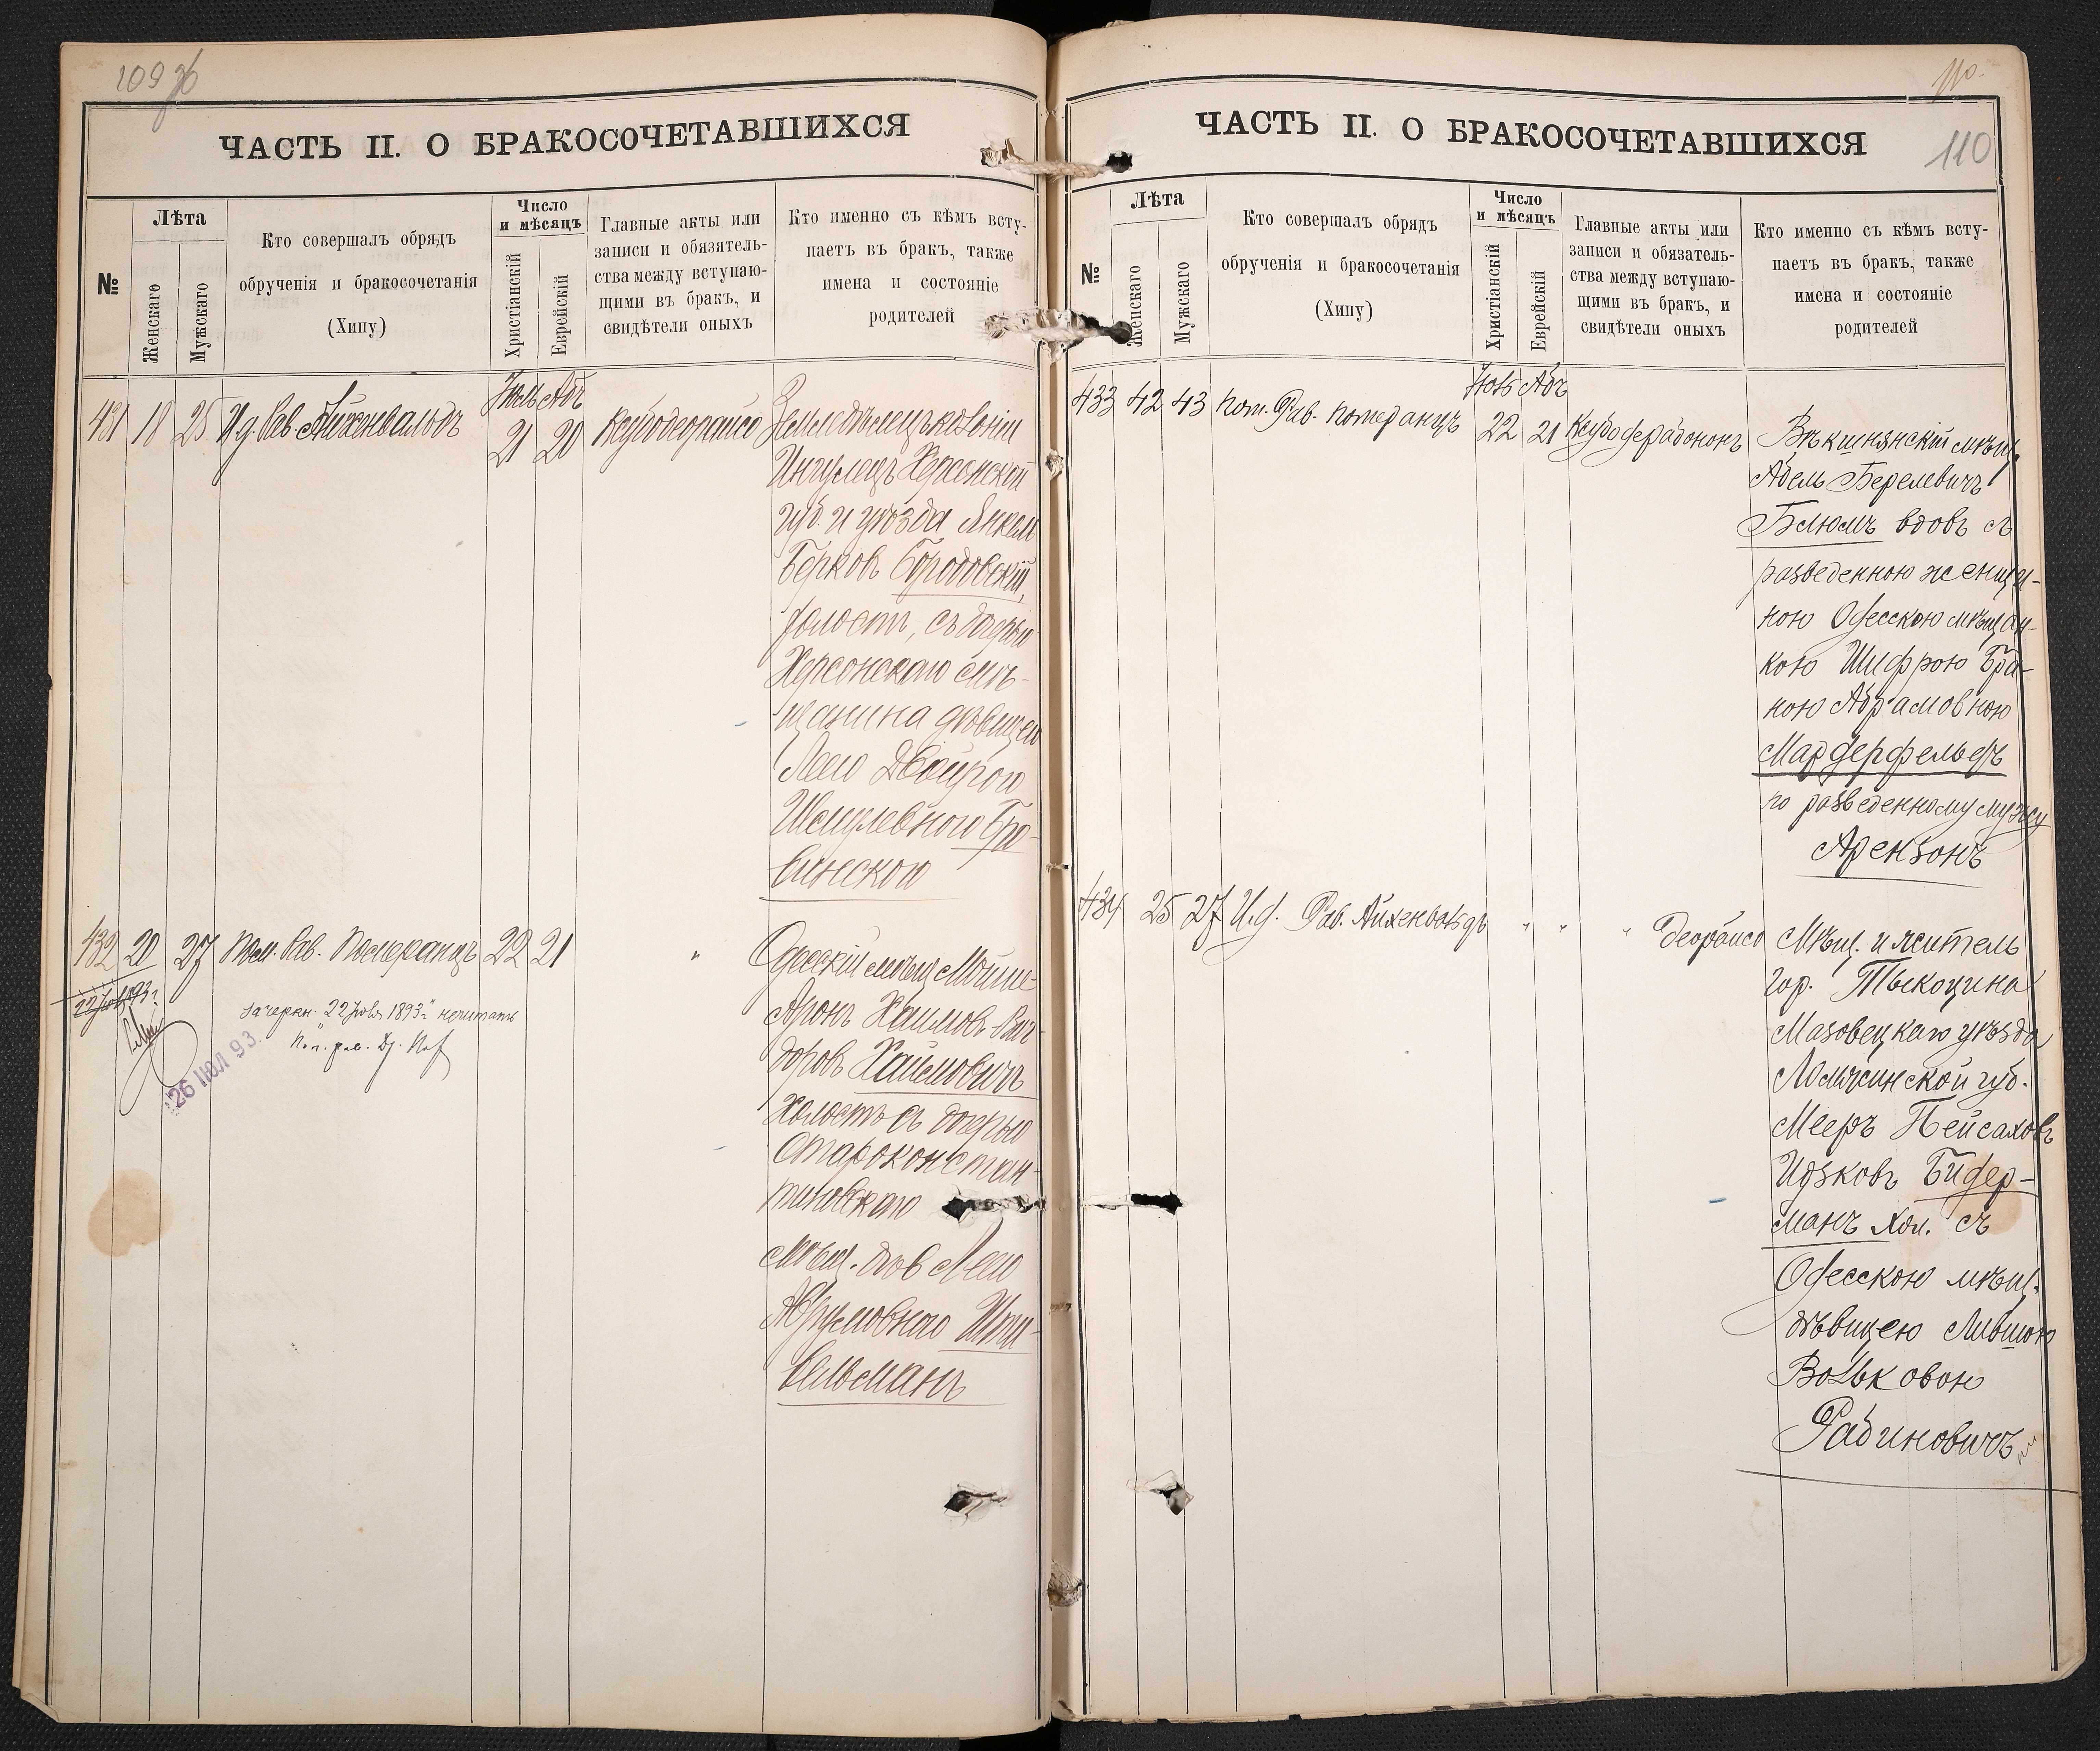 109 об
ЧАСТЬ II. О БРАКОСОЧЕТАВШИХСЯ
№
Лѣта
Женскаго
Мужскаго
Кто совершалъ обрядъ
обрученія и бракосочетанія
(Хипу)
Число
и мѣсяцъ
Христіанскій
Еврейскій
Главные акты или
записи и обязятель-
ства между вступаю-
щими въ бракъ, и
свидѣтели оныхъ
Кто именно съ кѣмъ всту-
паетъ въ бракъ, также
имена и состояніе
родителей
Іюль Абъ
431 18 25 И.д. Рав. Айхенвальдъ 21 20 Ксубодеорайсо
Земледѣлецъ колоніи
Ингулецъ Херсонской
губ. и уѣзда Янкель
Берковъ Бородовскій,
холостъ, съ дочерью
Херсонскаго мѣ-
щанина дѣвицею
Леею Двойрою
Шмулевною Бра-
винскою
432 20 27 Пом. Рав. Померанцъ 22 21 "
22 Іюля 93 г.
зачеркн. "22 Іюля 1893 г." не читать
Пом. рав.
26 ІЮЛ 93.
Одесскій мѣщ. Мойше-
Аронъ Хаимовъ Виг-
доровъ Хаимовичъ
Холостъ съ дочерью
Староконстан-
тиновскаго
мѣщ. дѣв Леею
Аврумовною Шпи-
вельманъ
110.
ЧАСТЬ II. О БРАКОСОЧЕТАВШИХСЯ
110
№
Лѣта
Женскаго
Мужскаго
Кто совершалъ обрядъ
обрученія и бракосочетанія
(Хипу)
Число
и мѣсяцъ
Христіанскій
Еврейскій
Главные акты или
записи и обязатель-
ства между вступаю-
щими въ бракъ, и
свидѣтели оныхъ
Кто именно съ кѣмъ всту-
паетъ въ бракъ, также
имена и состояніе
родителей
Іюль Абъ
433 42 43 Пом. Рав. Померанцъ 22 21 Ксубодерабононъ
Векшнянскій мѣщ.
Абель Берелевичъ
Блюмъ вдовъ съ
разведенною женщи-
ною Одесскою мѣщан-
кою Шифрою Бра-
ною Абрамовною
Мардерфельдъ
по разведенному мужу
Арензонъ
434 25 27 И.д. Рав. Айхенвальдъ " " " деорайсо
Мѣщ. и житель
гор. Тыкоцина
Мазовецкаго уѣзда
Ломжинской губ.
Мееръ Пейсаховъ
Ицковъ Бидер-
манъ хол. съ
Одесскою мѣщ.
дѣвицею Лившою
Вольковой
Рабиновичъ